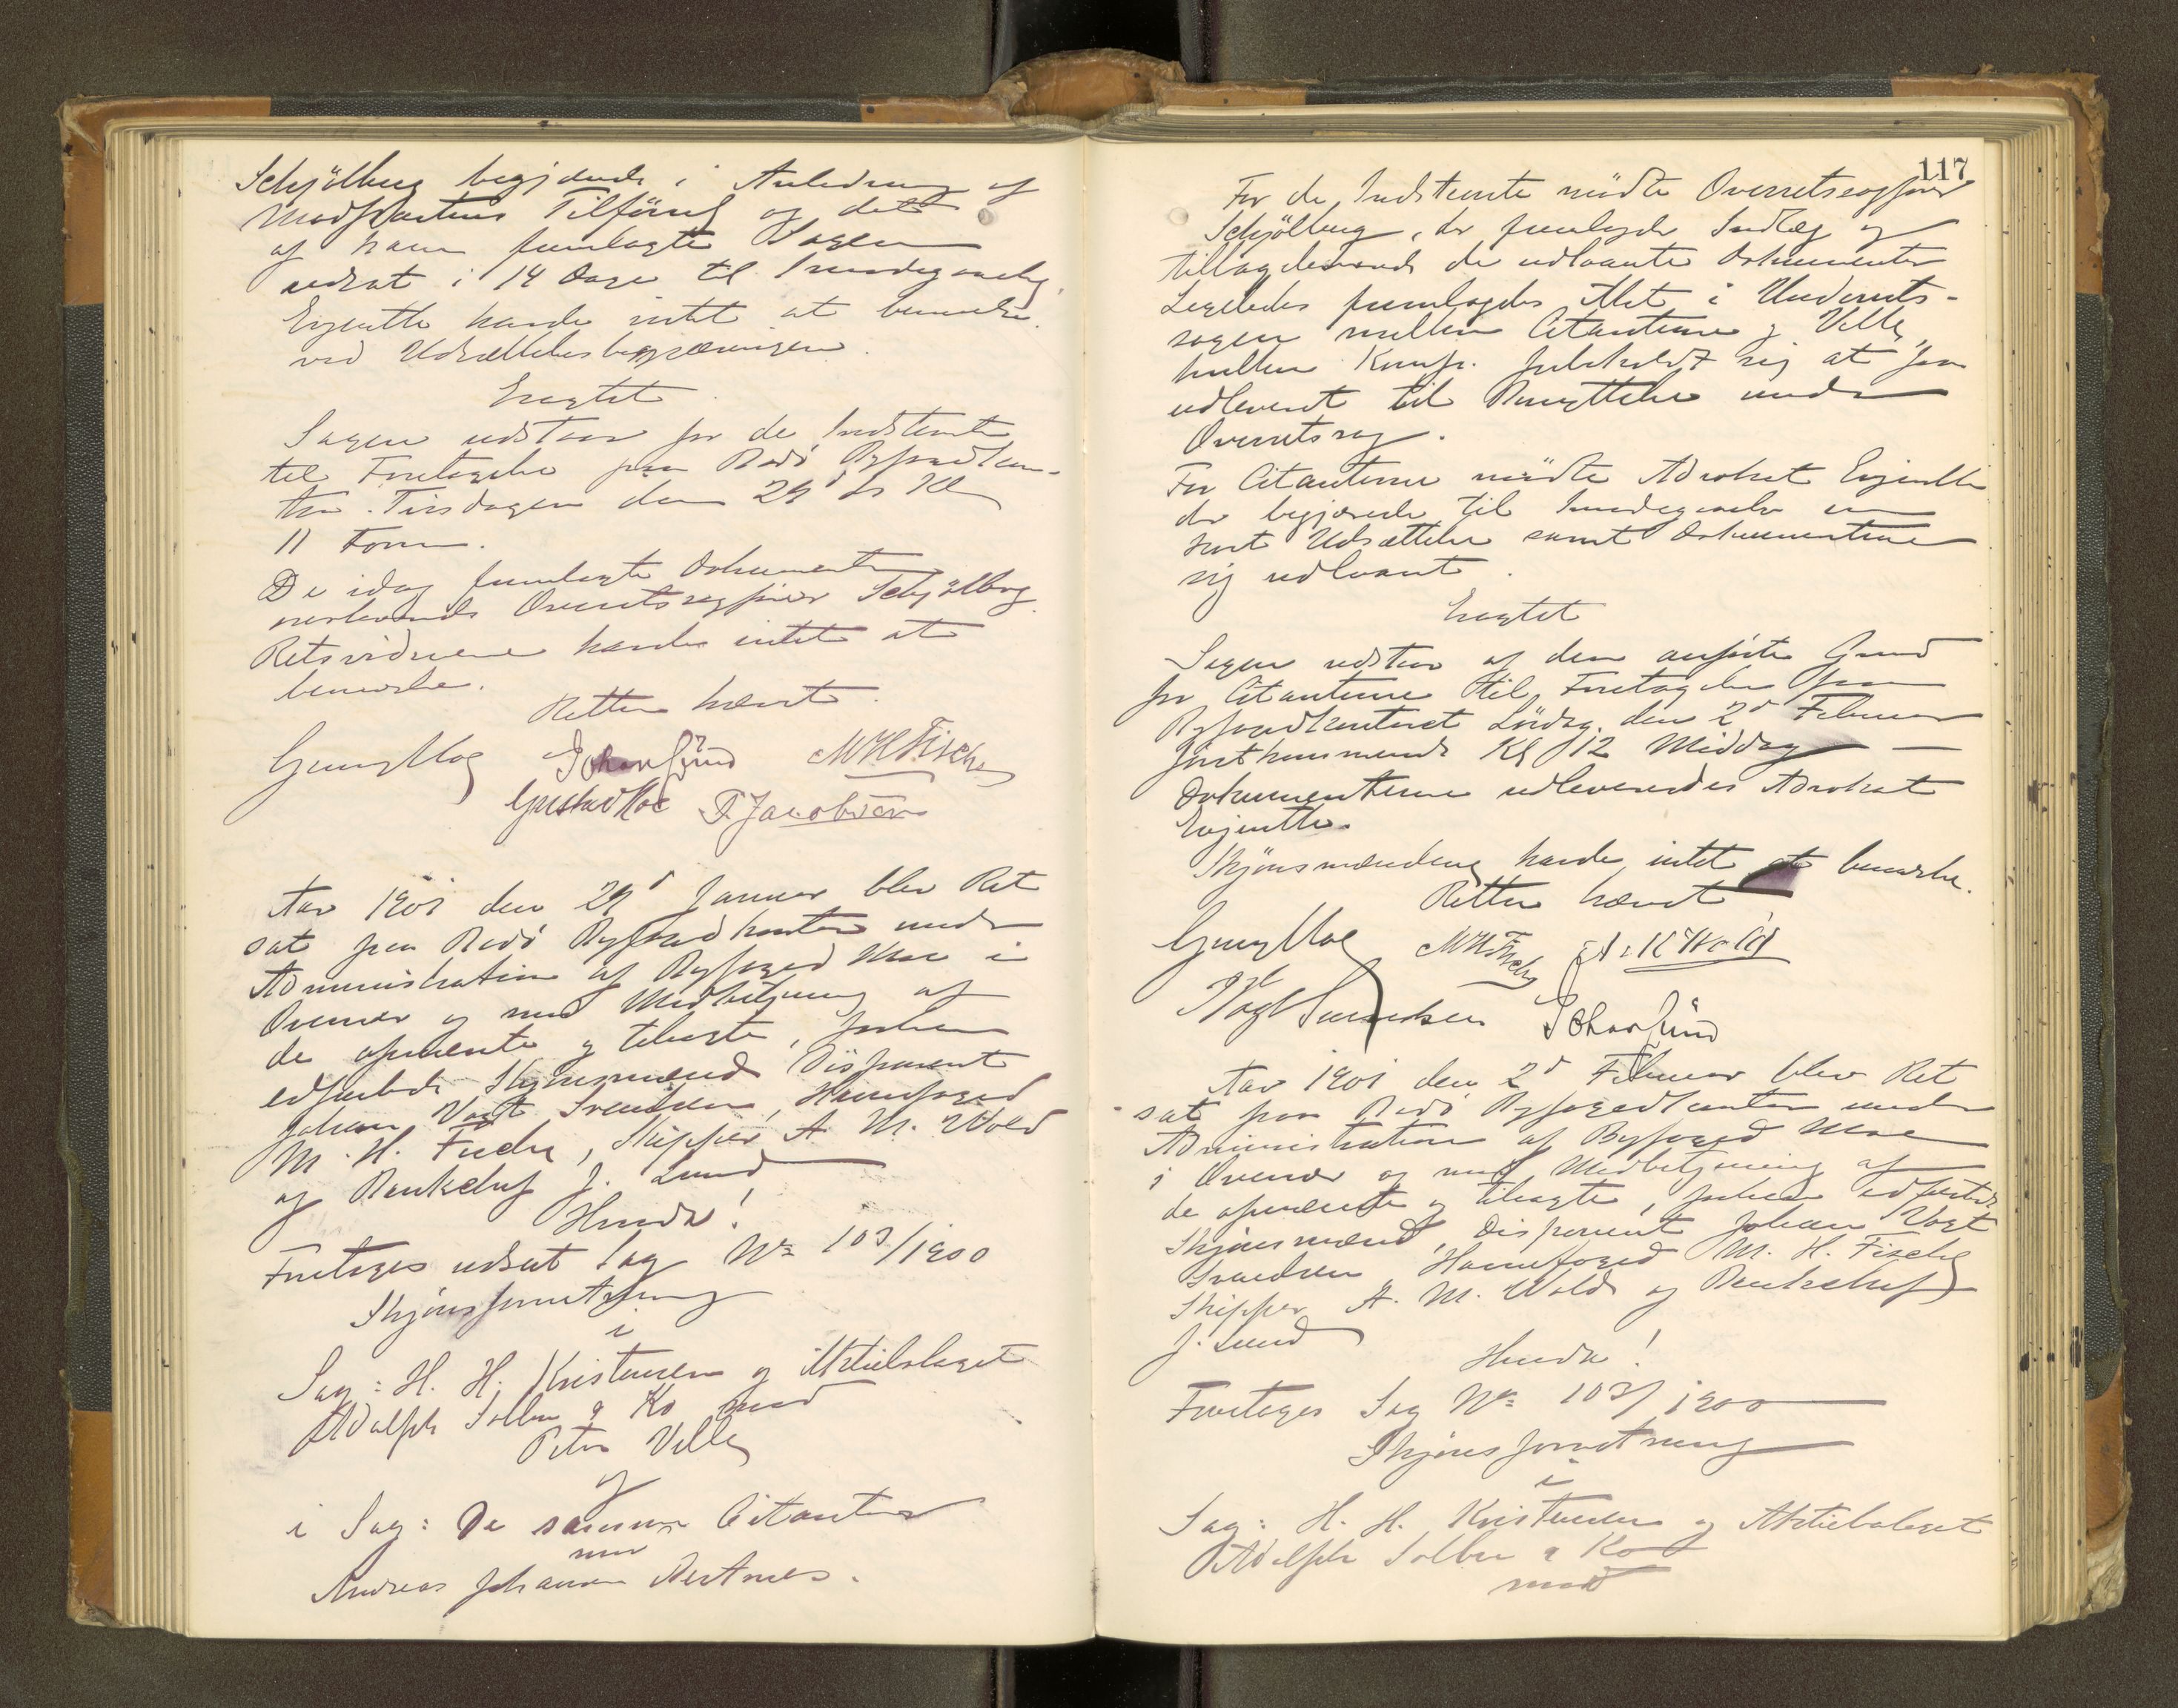 Schjölberg begjærede i Anledning af
Modpartens Tilförsel og det
af ham fremlagte Sagen
udsat i 14 Dage til Imødegaaelse,
Evjenth havde intet at bemærke
ved Udsættelsesbegjæringen.
Eragtet
Sagen udstaar for de Indstevnte
til Foretagelse paa Bodö Byfogdkon-
tor Tirsdagen den 29d ds Kl
11 Form.
De idag fremlagte Dokumenter
overleveredes Overretssagförer Schjölberg
Retsvidnerne havde intet at
bemærke.
Retten hævet.
Johan Lund M H Fischer
Gustad Moe F Jacobsen
Aar 1901 den 29d Januar blev Ret
sat paa Bodö Byfogdkontor under
Administration af Byfoged Moe i
Overvær og med Medbetjening af
de opnævnte og tilsagte, forhen
edfæstede Skjönsmænd Disponent
Johan Vogt Svendsen, Havnefoged
M. H. Fischer, Skipper A. M. Wold
og Bankchef J. Lund
Hvorda!
Foretages udsat Sag No 103/1900
Skjönsforretning
i
Sag: H. H. Kristensen og Aktiebolaget
Adolph Solber & Ko mod
Peter Velle
og
i Sag: De samme Citanter
mod
Andreas Johansen Aertnes.
117
For de Indstevnte mödte Overretssagförer
Schjölberg, der fremlagde Indlæg og
tilbageleverede de udlaante Dokumenter
Ligeledes fremlagdes Akt i Underrets-
sagen mellem Citanterne og Velle,
hvilken Komp. forbeholdt sig at faa
udleveret til Benyttelse under
Overretssag.
For Citanterne mödte Advokat Evjenth
der begjærede til Imødegaaelse en
kort Udsættelse samt Dokumenterne
sig udlaant.
Eragtet
Sagen udstaar af den anförte Grund
for Citanterne til Foretagelse paa
Byfogedkontoret Lördag den 2d Februar
förstkommende Kl 12 Middag
Dokumenterne udleveredes Advokat
Evjenth.
Skjönsmændene havde intet at bemærke.
Retten hævet
M H Fischer A. M Wold
Vogt Svendsen Johan Lund
Aar 1901 den 2d Februar blev Ret
sat paa Bodö Byfogedkontor under
Administration af Byfoged Moe
i Overvær og med Medbetjening af
de opnævnte og tilsagte, forhen edfæstede
Skjönsmænd, Disponent Johan Vogt
Svendsen Havnefoged M. H. Fischer
Skipper A. M. Wold og Bankchef
J. Lund
Hvorda!
Foretages Sag No 103/1900
Skjönsforretning
i
Sag: H. H. Kristensen og Aktiebolaget
Adolph Solber & Ko
mod